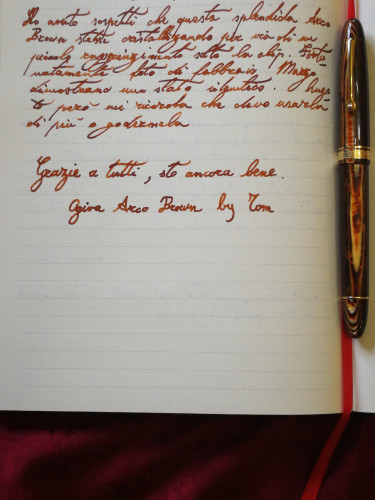 Ho avuto sospetti che questa splendida Arco
Brown stesse cristallizzando per via di un
piccolo restringimento sotto la clip. Fortu
natamente foto di febbraio, Marzo
dimostrano uno stato identico.
to però mi ricorda che devo usarla
di più e godermela
Grazie a tutti, sto ancora bene.
Ogiva Arco Brown by Tom